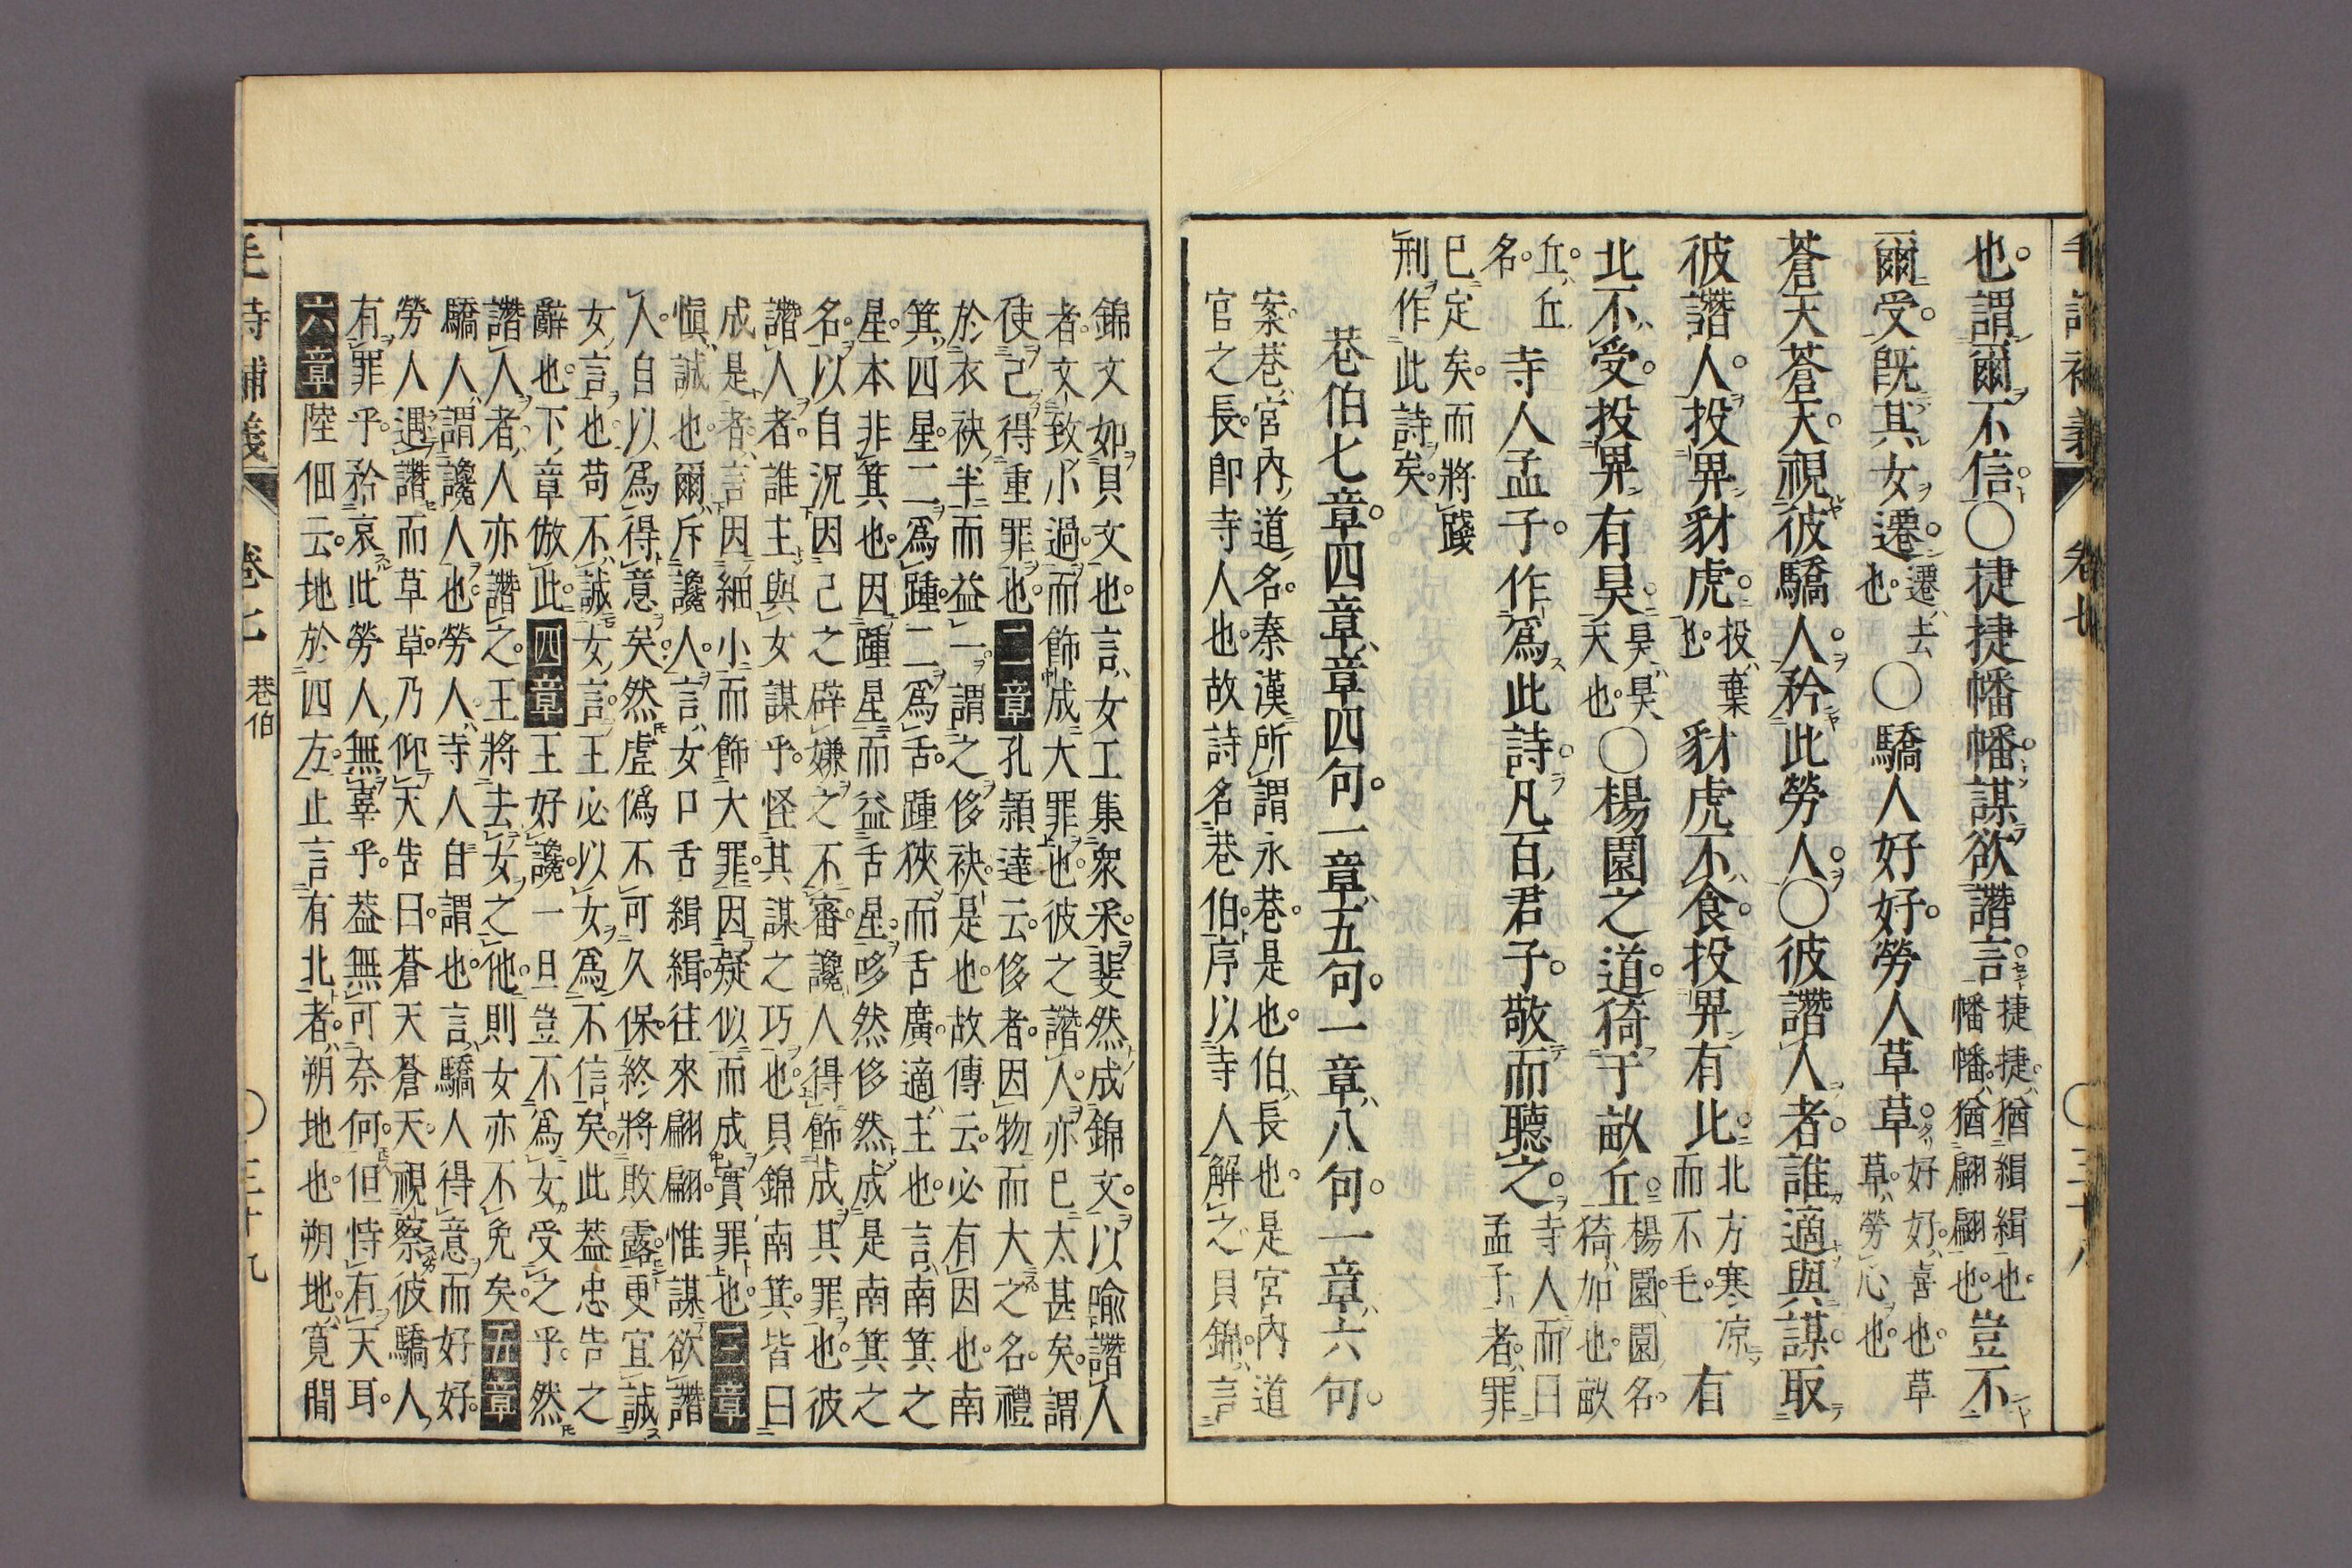 也謂爾不信○捷捷幡幡謀欲譖言捷捷猶緝緝也幡幡猶翩翩也豈不
爾受既其女遷遷去也○驕人好好勞人草草好好喜也草草勞心也
蒼天蒼天視彼驕人矜此勞人○彼譖人者誰適與謀取
彼譖人投畀豺虎投棄也豺虎不食投畀有北北方寒凉而不毛有
北不受投畀有昊昊昊天也○楊園之道猗于畝丘楊園園名猗加也畝
丘丘名寺人孟子作為此詩凡百君子敬而聽之寺人而曰孟子者罪
已定矣而將踐刑作此詩矣
巷伯七章四章章四句一章五句一章八句一章六句
案巷宮內道名秦漢所謂永巷是也伯長也是宮內道
官之長即寺人也故詩名巷伯序以寺人解之貝錦言
錦文如貝文也言女工集衆采斐然成錦文以喩譖人
者文致小過而飾成大罪也彼之譖人亦已太甚矣謂
使己得重罪也二章孔頴達云侈者因物而大之名禮
於衣袂半而益一謂之侈袂是也故傳云必有因也南
箕四星二爲踵二爲舌踵狹而舌廣適主也言南箕之
星本非箕也因踵星而益舌星哆然侈然成是南箕之
名以自況因己之辟嫌之不審讒人得飾成其罪也彼
譖人者誰主與女謀乎怪其謀之巧也貝錦南箕皆曰
成是者言因細小而飾大罪因疑似而成實罪也三章
愼誠也爾斥讒人言女口舌緝緝往來翩翩惟謀欲譖
人自以爲得意矣然虛僞不可久保終將敗露更宜誠
女言也苟不誠女言王必以女爲不信矣此葢忠告之
辭也下章倣此四章王好讒一旦豈不爲女受之乎然
譖人者人亦譖之王將去女之他則女亦不免矣五章
驕人謂讒人也勞人寺人自謂也言驕人得意而好好
勞人遇譖而草草乃仰天告曰蒼天蒼天視察彼驕人
有罪乎矜哀此勞人無辜乎葢無可奈何但恃有天耳
六章陸佃云地於四方止言有北者朔地也朔地寬閒
毛詩補義 卷七 巷伯 ○三十九